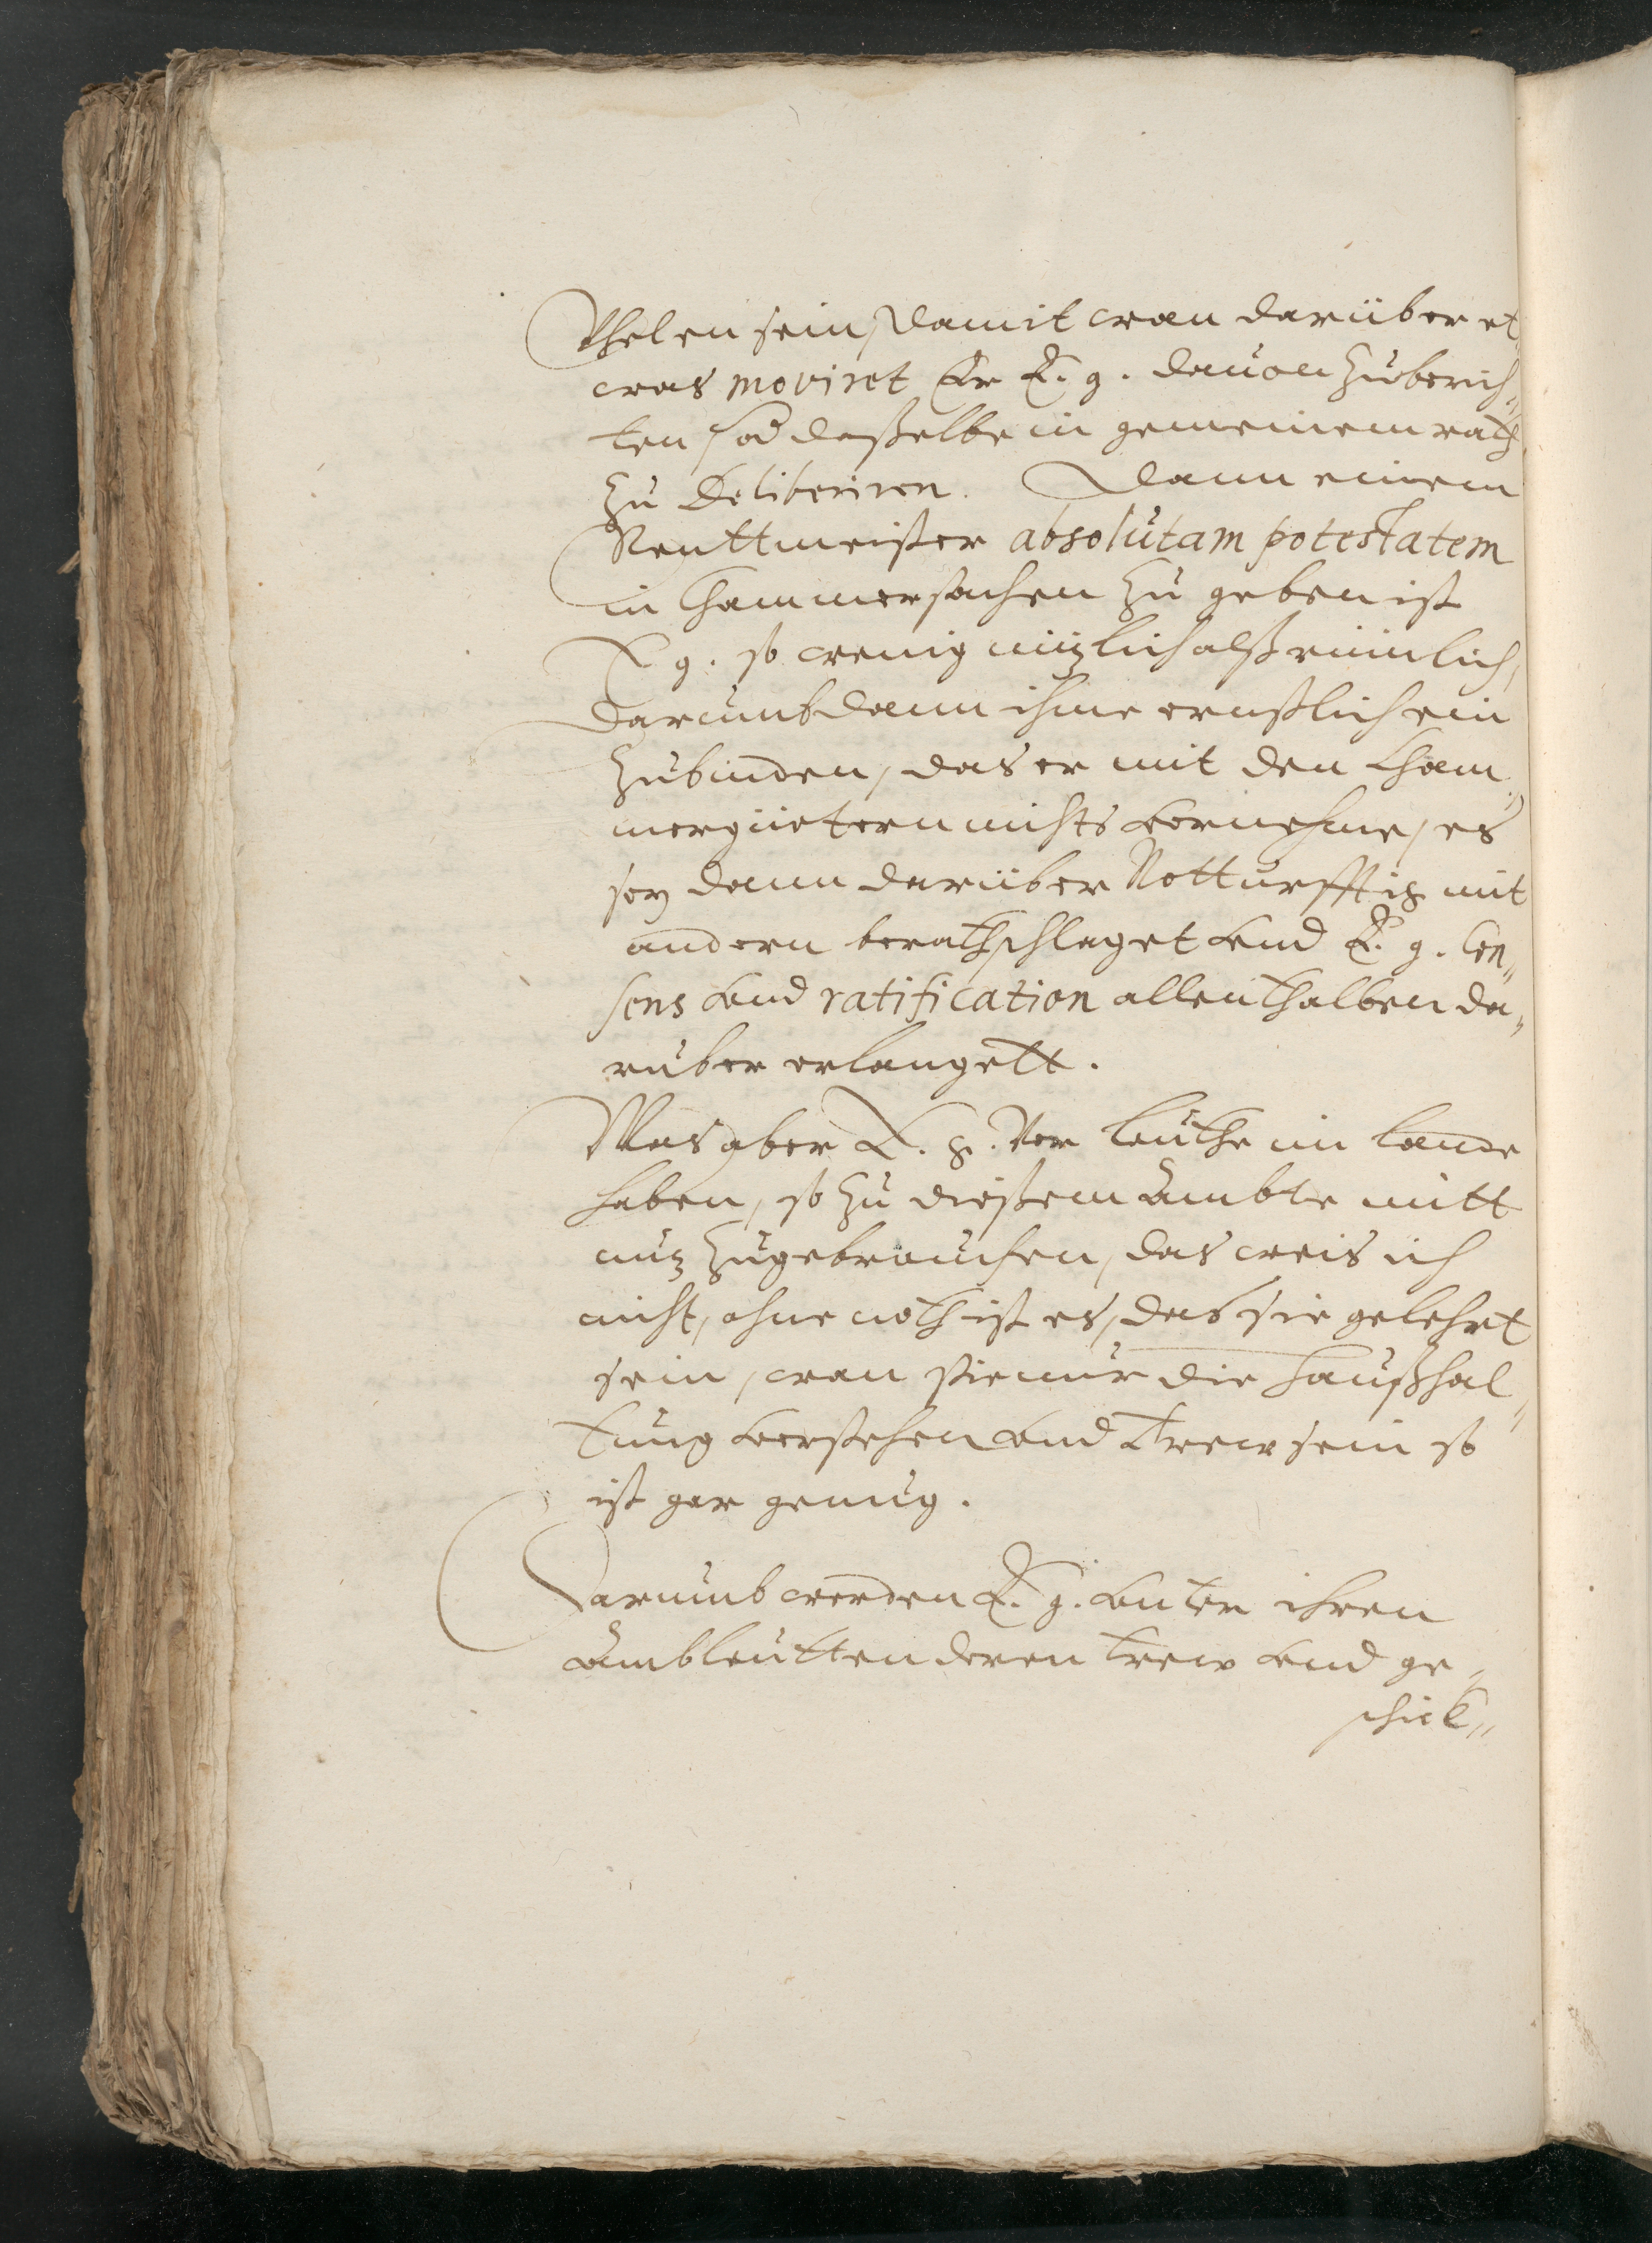 fhelen sein, damit wan darüber et„
was moviret Er E. g. dauon zuberich„
ten hab dasselbe in gemeinem rath
zu deliberiren. Dann einem
Renttmeister absolutam potestatem
in Chammersachen zu geben ist
E g. so wenig nützlich alß rümlich,
Darumb dann ihme ernstlich ein
zubinden, das er mit den Cham„
mergüetern nichts vornehme, es
sey dann darüber Notturfftig mit
andern berathschlaget vnd E. g. Con„
sens vnd ratification allenthalben da„
rüber erlangett.
Was aber E. g. vor leuthe im lande
haben, so zu diessem Ambte mitt
nutz zugebrauchen, das weis ich
nicht, ohne noth ist es, das sie gelehrt
sein, wan sie nur die haußhal„
tung verstehen vnd trew sein so
ist gar genug.
Darumb werden E. g. vnter ihren
Ambleutten deren trew vnd ge„
schick„